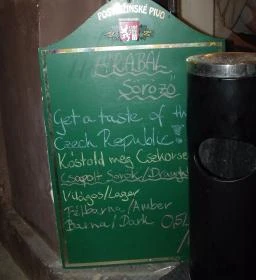 POSTŘIŽINSKÉ PIVO
HRABAL
Söröző
Get a taste of th
Czech Republic!
Kóstold meg Csehorsz
Csapolt Sörök/Draught
Világos/Lager
Félbarna/Amber
Barna/Dark 0,5L